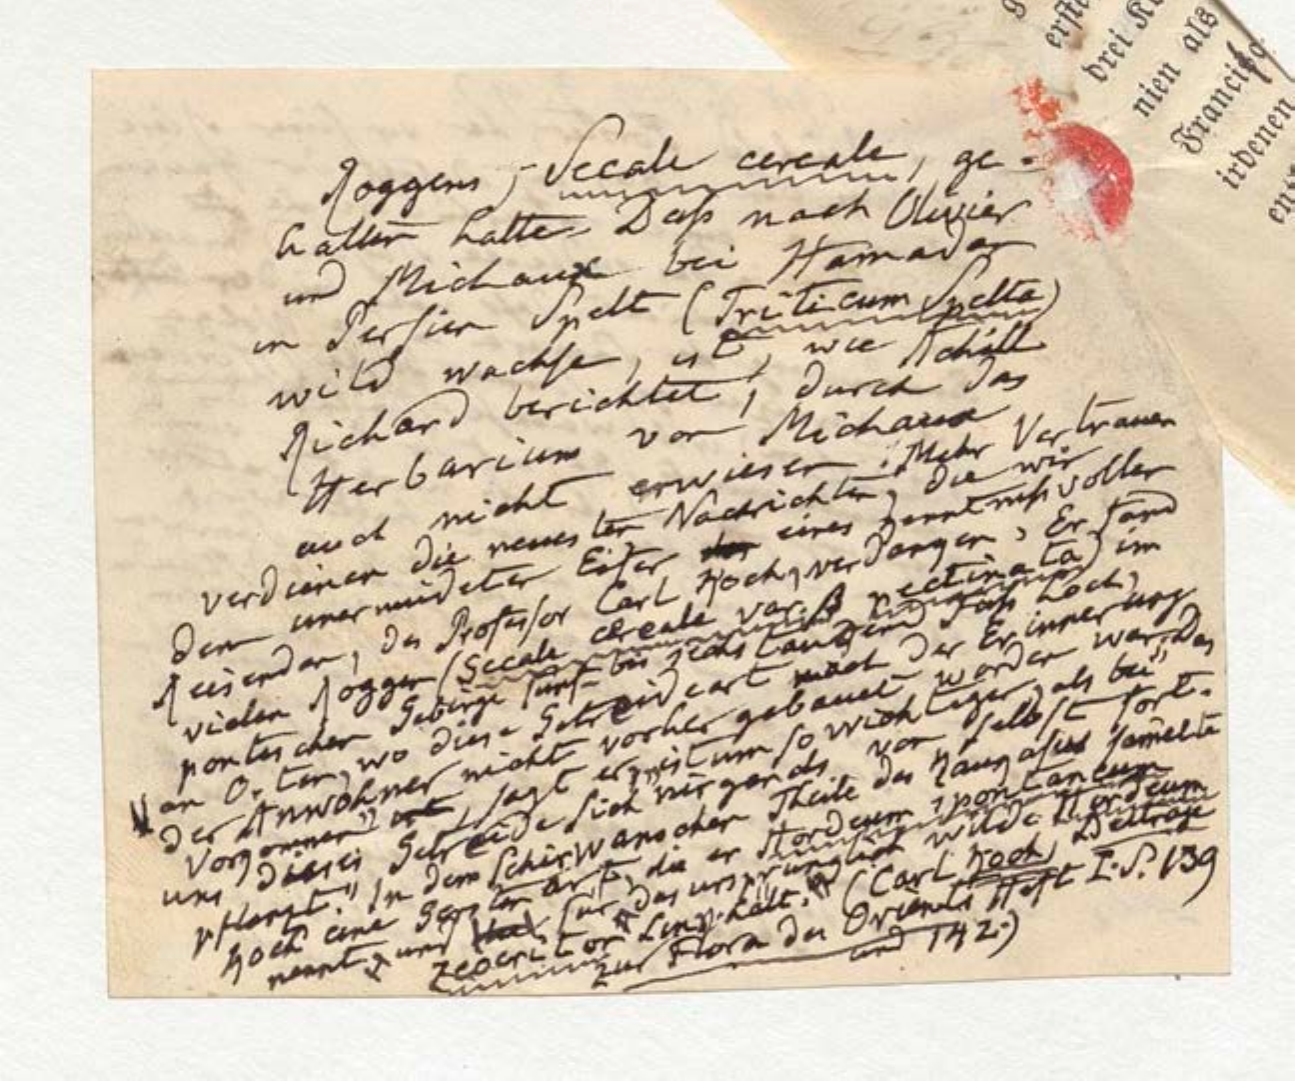 Roggens, Secale cereale, ge-
halten hatte. Daß nach Olivier
und Michaux bei Hamadan
in Persien Spelt (Triticum Spelta)
wild wachse, ist, wie Achill
Richard berichtet, durch das
Herbarium von Michaux
auch nicht erwiesen. Mehr Vertrauen
verdienen die neuesten Nachrichten, die wir
dem unermüdeten Eifer eines kenntnißvollen
Reisenden, des Professor Carl Koch, verdanken. Er fand
vielen Roggen (Secale cereale var. β pectinata) im
pontischen Gebirge fünf- bis sechstausend Fuß hoch,
an Orten, wo diese Getreideart nach der Erinnerung
der Anwohner nicht vorher gebauet worden war. „Das
Vorkommen", sagt er, „ist um so wichtiger, als bei
uns dieses Getreide sich nirgends von selbst fort-
pflanzt." In dem Schirwanschen Theile des Kaukasus samelte
Koch eine Gersten art, die er Hordeum spontaneum
nennt, und für das ursprünglich wilde Hordeum
zeocriton Linn. hält. (Carl Koch, Beiträge
zur Flora des Orients Heft I. S. 139
und 142.)
erste
drei
nien als
Francisco
irdenen